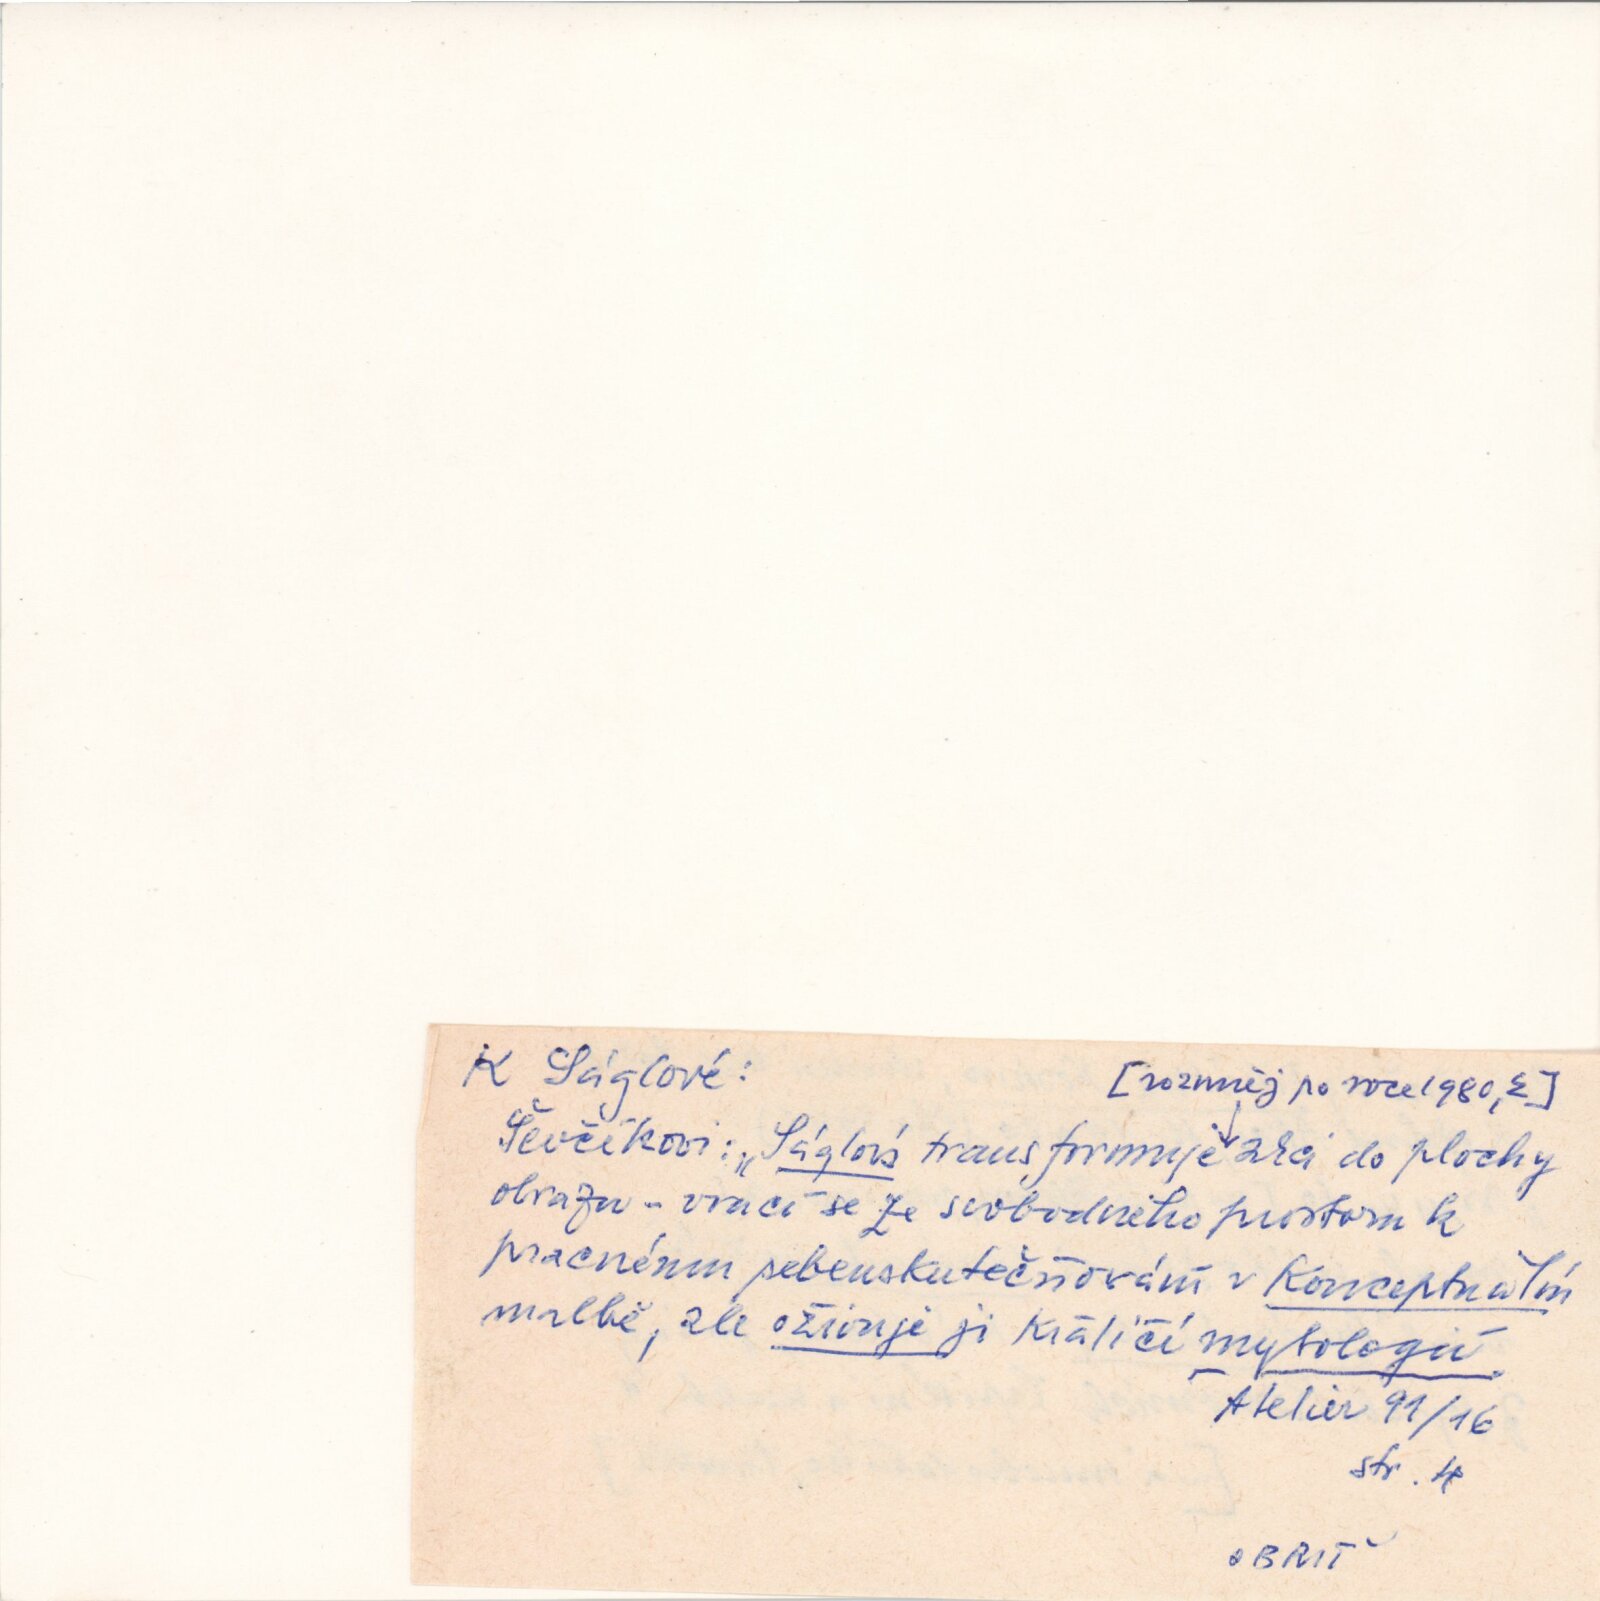 K Ságlové:
[rozuměj po roce 1980, Σ]
Ševčíkovi: „Ságlová transformuje akci do plochy
obrazu - vrací se ze svobodného prostoru k
pracnému sebeuskutečňování v konceptuální
malbě, ale oživuje ji králičí mytologií.
Atelier 91/16
str. 4
OBRAŤ